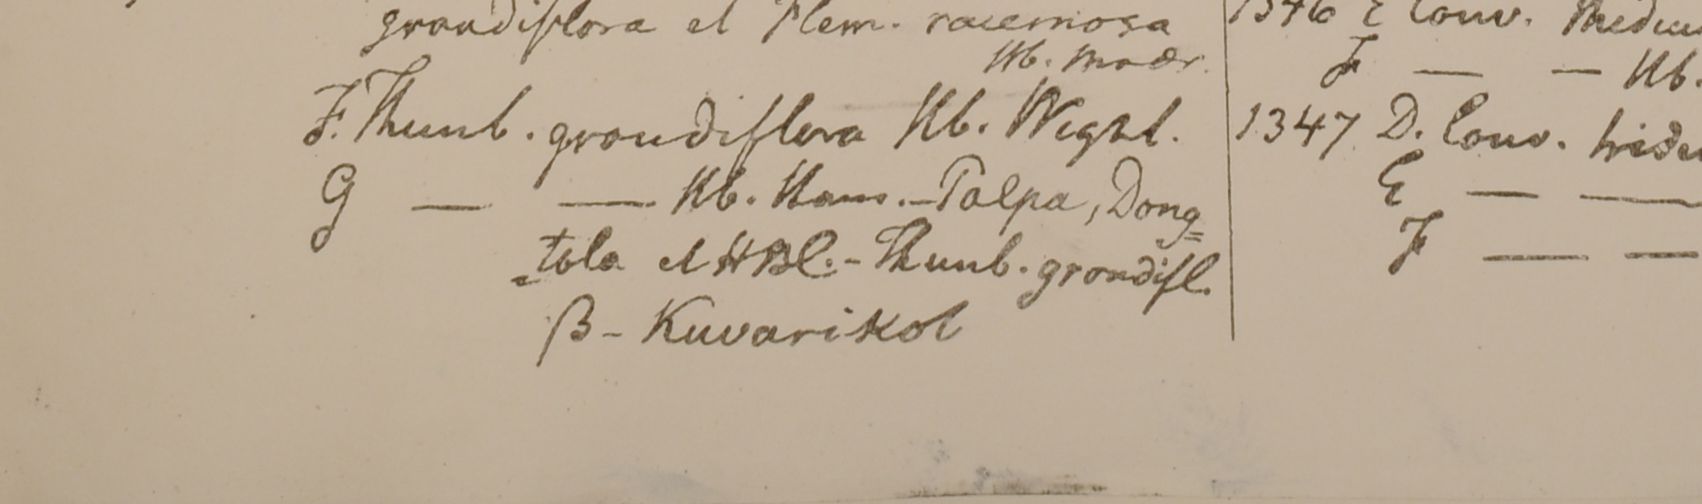 grandiflora et Flem. racemosa
Hb. Madr.
F. Thunb. grandiflora Hb. Wight.
G — — Hb. Ham. - Palpa, Dong=
=tola et HBC. - Thunb. grandifl.
β - Kuvarikol
1346 E Conv.
F — — Hb.
1347 D. Conv.
E — —
F — —